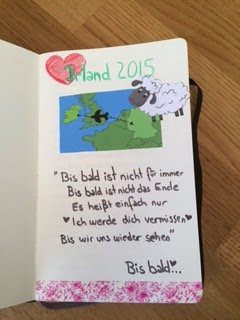 Irland 2015
"Bis bald ist nicht für immer
Bis bald ist nicht das Ende
Es heißt einfach nur
Ich werde dich vermissen
Bis wir uns wieder sehen"
Bis bald...